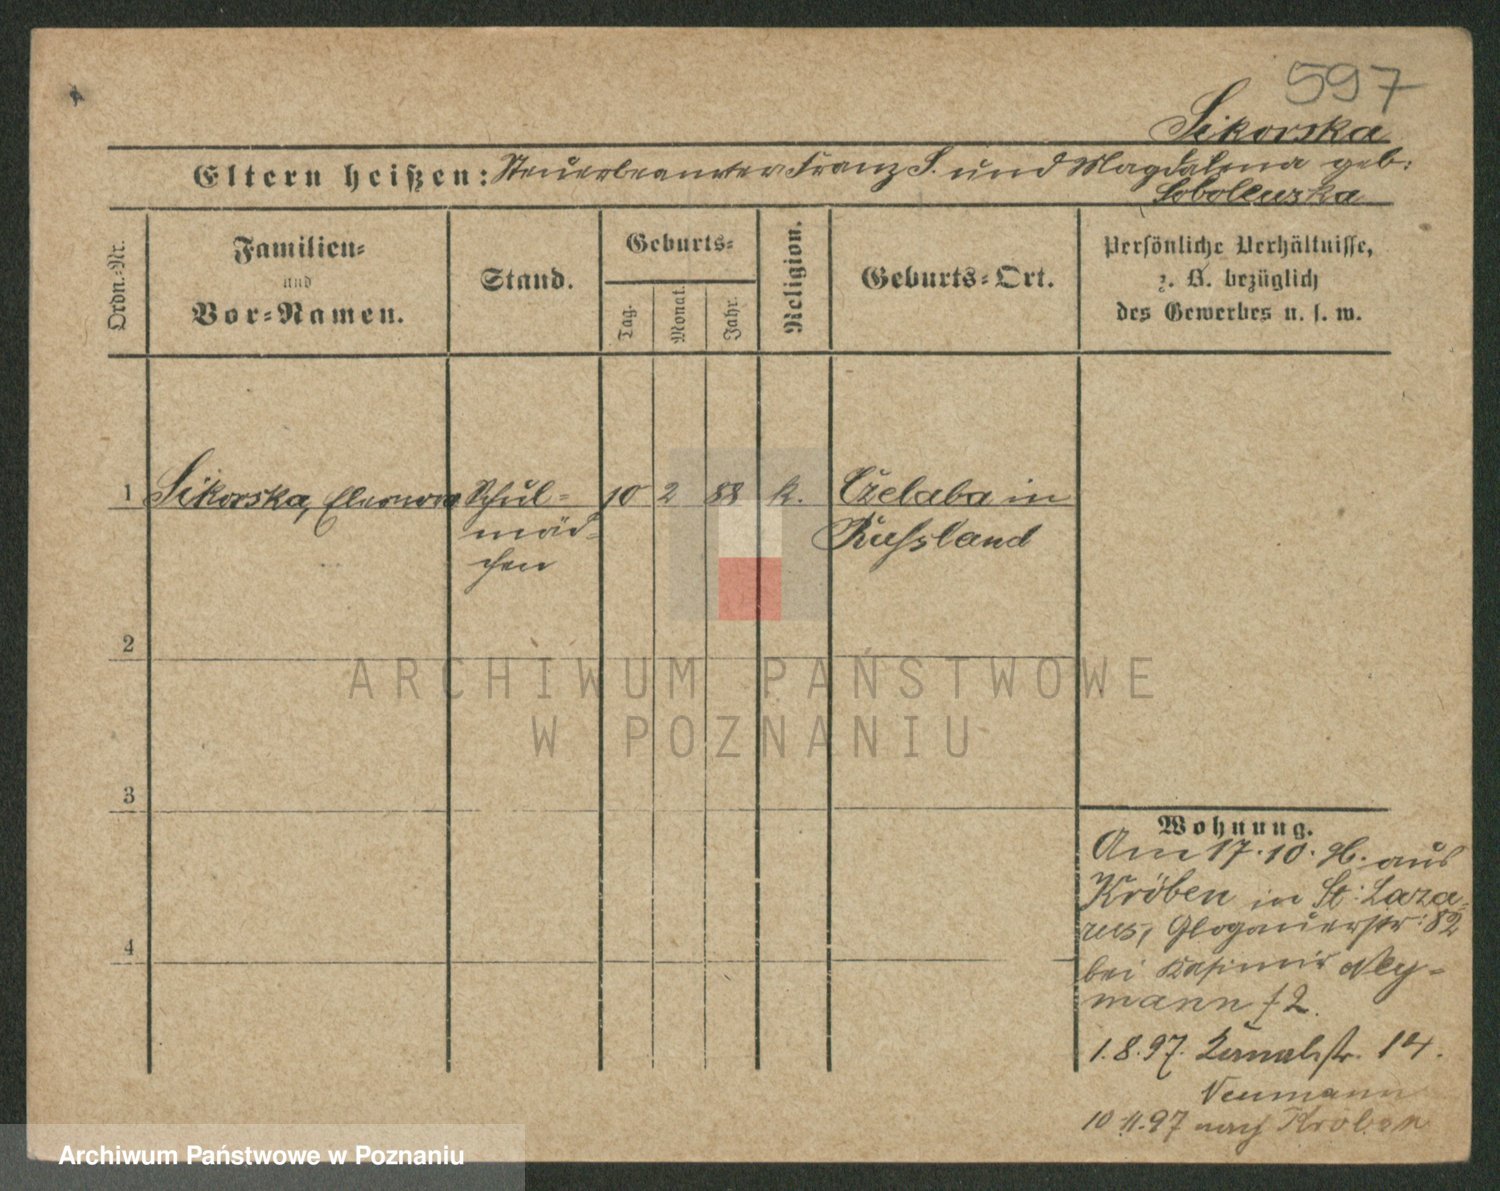 597
Sikorska
Eltern heißen: Steuerbeamter Franz S. und Magdalena geb:
Sobolewska
Ordn.-Nr.
Familien-
und
Vor-Namen.
Stand.
Geburts-
Tag.
Monat.
Jahr.
Religion.
Geburts-Ort.
Persönliche Verhältnisse,
z. B. bezüglich
des Gewerbes u. s. w.
1 Sikorska, Eleonora Schul- 10 2 88 k. Czelaba in
mäd- Russland
chen
2
3
4
Wohnung.
Am 17.10.96. aus
Kröben in St: Laza-
rus, Glogauerstr: 82
bei Kasimir Ney-
mann
1.8.97. 14.
Neumann
10.11.97 nach Kröben
ARCHIWUM PAŃSTWOWE
W POZNANIU
Archiwum Państwowe w Poznaniu